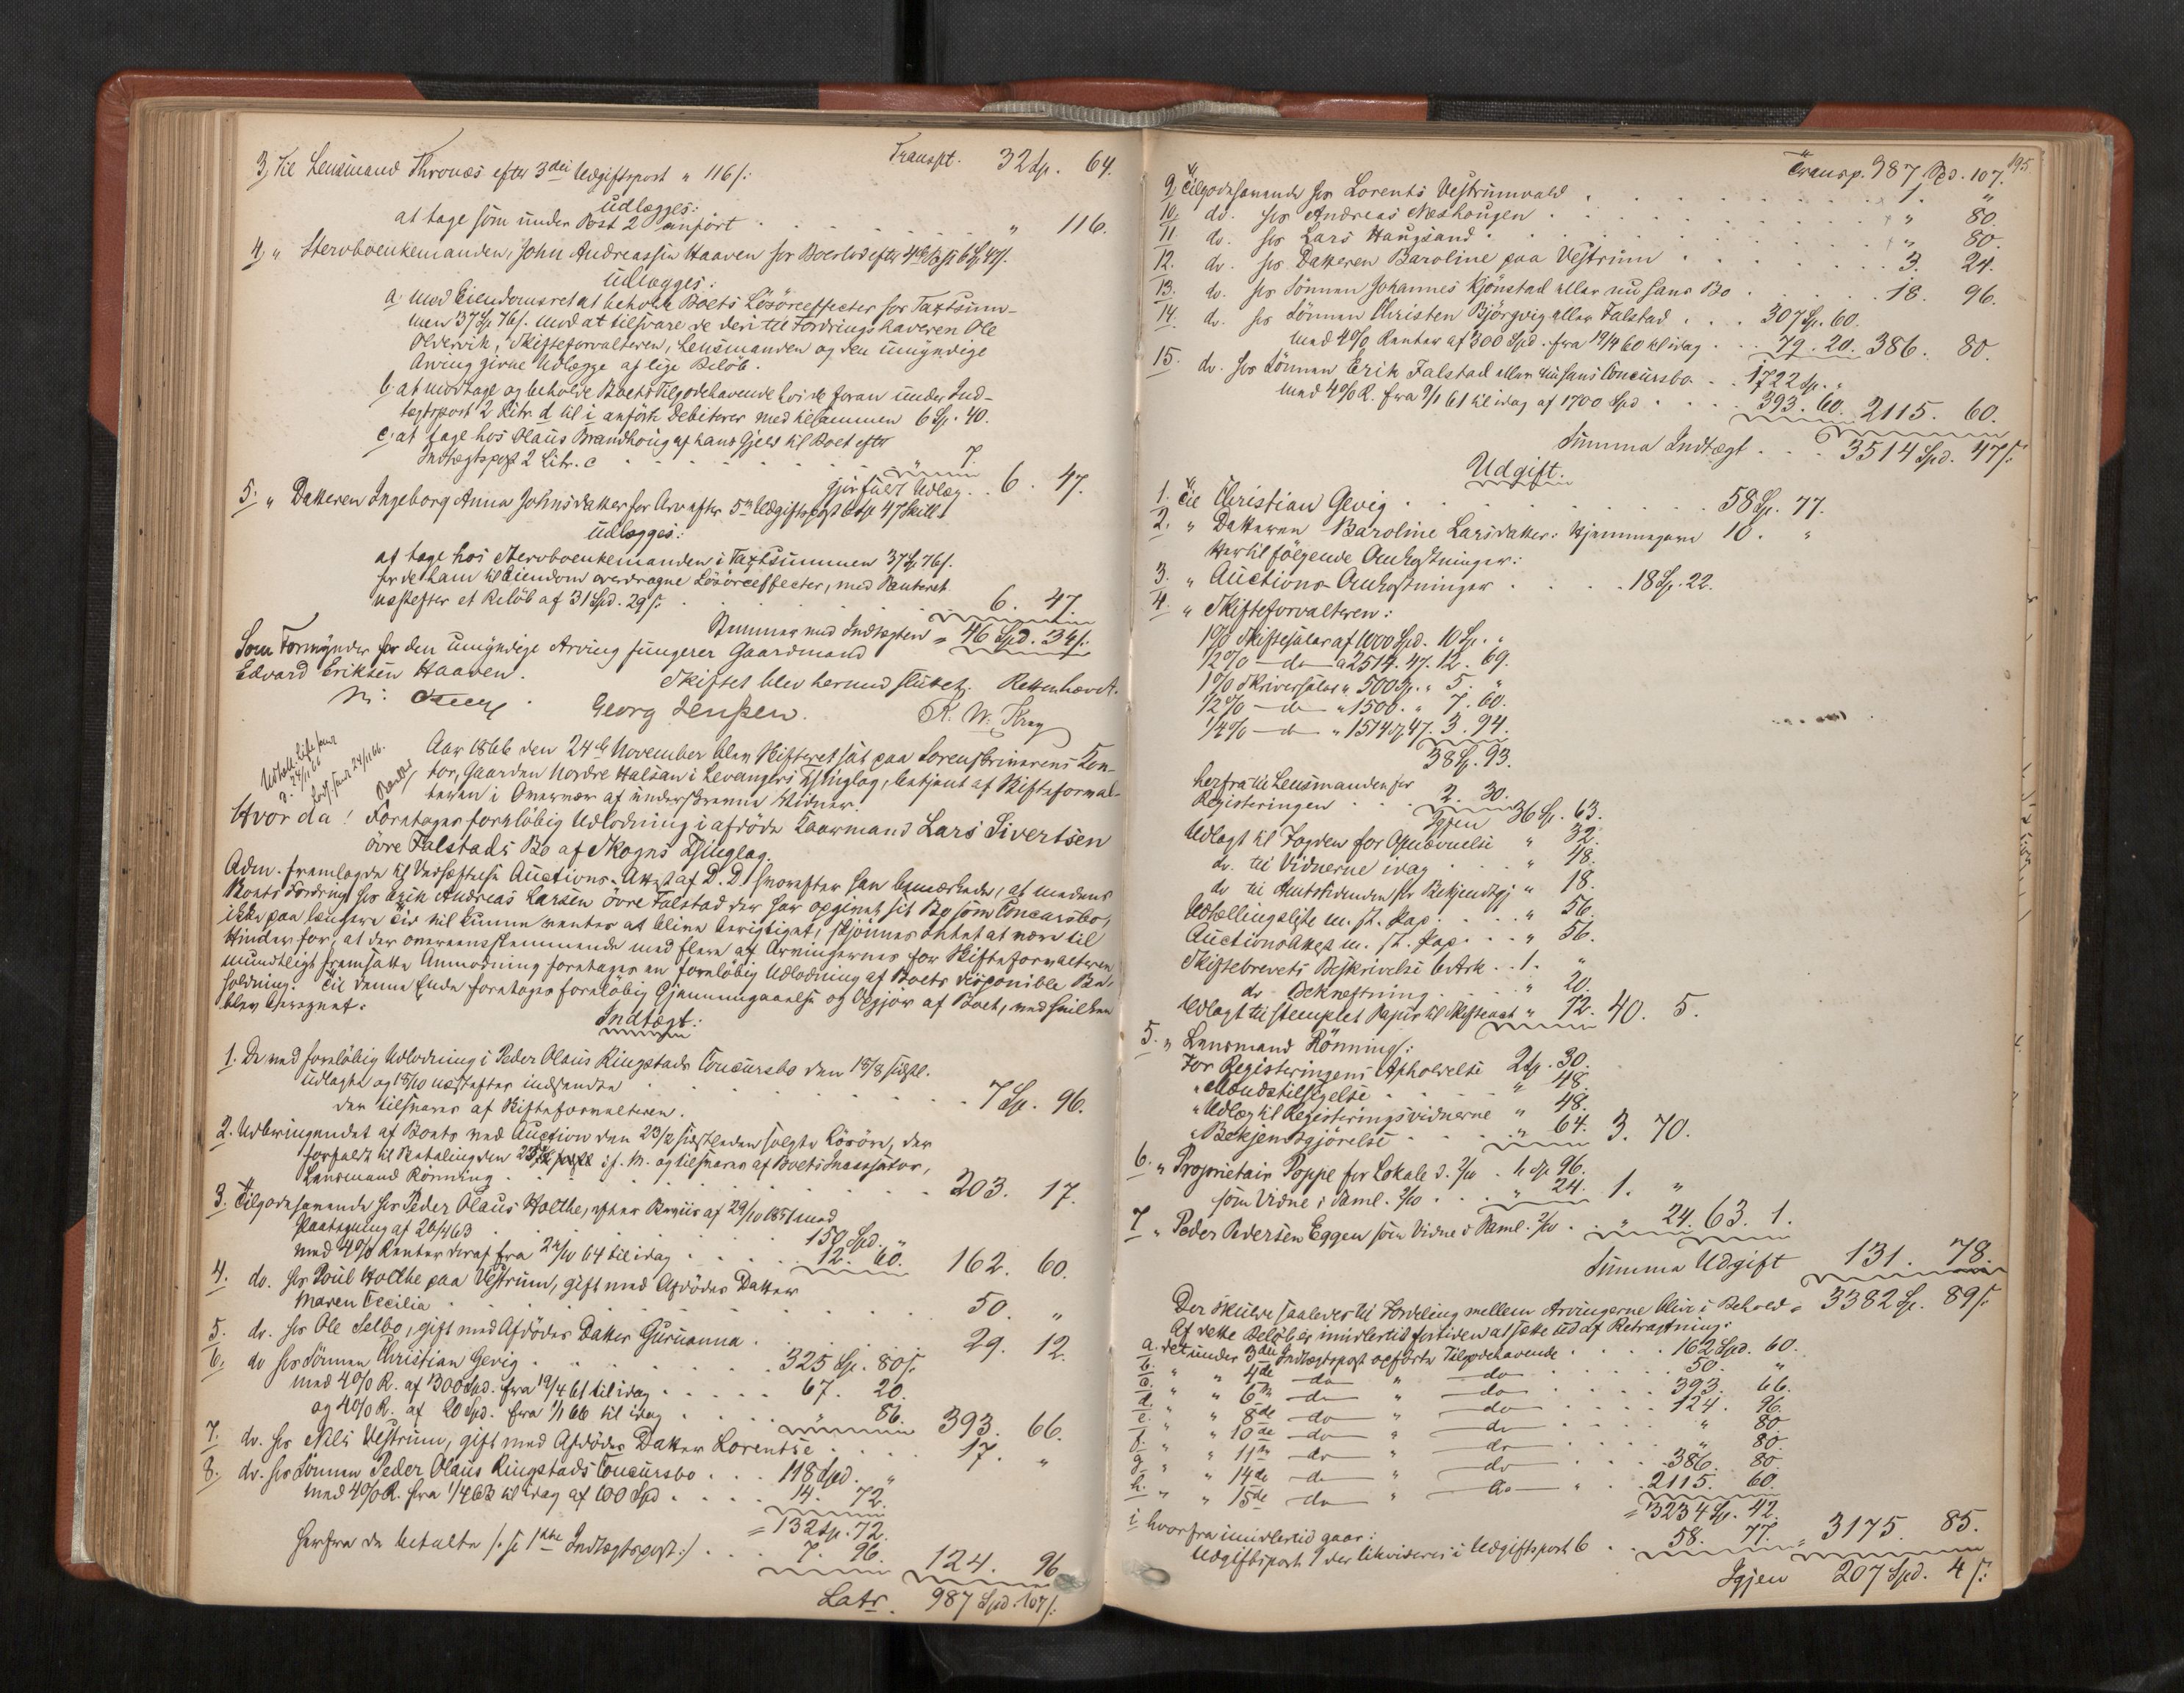 Transpt. 32 Sp. 64.
3, Til Lensmand Thronæs efter 3die Udgiftspost " 116 s:
Udlægges:
at tage som under Post 2 anført . . . . . " 116.
4, " Stervboenkemanden, John Andreassen Haaven for Boeslod efter
Udlægges:
a. med Eiendomsret at beholde Boets Løsøreeffecter for Taxtsum-
men 37 Sp 76 s. mod at tilsvare de deri til Fordringshaveren Ole
Oldervik, Skifteforvalteren, Lensmanden og den umyndige
Arving givne Udlægge af lige Beløb.
b. at modtage og beholde Boets Tilgodehavende hos de foran under Ind-
tægtspost 2 Litr. d til i anførte Debitorer med tilsammen 6 Sp. 40.
c. at tage hos Olaus Brandhoug af hans Gjeld til Boet efter
Indtægtspost 2 Litr. c . . . . . " 7.
Gjør fuldt Udlæg . . 6. 47.
5. " Datteren Ingeborg Anna Johnsdatter for Arv efter 5te Udgiftspost 6 Sp 47 Skill.
Udlægges:
at tage hos Stervboenkemanden i Taxtsummen 37 Sp 76 s.
for de ham til Eiendom overdragne Løsøreeffecter, med Panteret
næstefter et Beløb af 31 Spd. 29 s. . . . . 6. 47.
Stemmer med Indtægten = 46 Spd. 34 s.
Som Formynder for den umyndige Arving fungerer Gaardmand
Edvard Eriksen Haaven.
Skiftet blev hermed sluttet. Retten hævet.
Georg Jenssen.
Aar 1866 den 24de November blev Skifteret sat paa Sorenskriverens Con-
tor, Gaarden Nordre Halsan i Levangers Thinglag, betjent af Skifteforval-
teren i Overvær af underskrevne Vidner.
Hvor da! Foretages foreløbig Udlodning i afdøde Kaarmand Lars Sivertsen
øvre Falstads Bo af Skogns Thinglag.
Adm. fremlagde til Vedhæftelse Auctions-Attest af D. D. hvorefter han bemærkede, at medens
Boets Fordring hos Erik Andreas Larsen øvre Falstad der har opgivet sit Bo som Concursbo,
ikke paa længere Tid vil kunne ventes at blive berigtiget, skjønnes Intet at være til
Hinder for, at der overeensstemmende med flere af Arvingernes for Skifteforvalteren
mundtligt fremsatte Anmodning foretages en foreløbig Udlodning af Boets disponible Be-
holdning. Til denne Ende foretages foreløbig Gjennemgaaelse og Opgjør af Boet, ved hvilken
blev beregnet:
Indtægt:
1. De ved foreløbig Udlodning i Peder Olaus Ringstads Concursbo den 18/8 sidstl.
udlagte og 18/10 næstefter indsendte . . . . . 7 Sp. 96.
der tilsvares af Skifteforvalteren.
2. Udbringendet af Boets ved Auction den 23/2 sidstleden solgte Løsøre, der
forfaldt til Betaling den i f. M. og tilsvares af Boets Incassator,
Lensmand Rönning . . . . . 203. 17.
3. Tilgodehavende hos Peder Olaus Holthe, efter Beviis af 29/10 1857 med
Paategning af 20/4 63 . . . . 150 Spd. "
med 4% Renter deraf fra 24/10 64 til idag . . . 12. 60. 162. 60.
4. do. hos Poul Holthe paa Vestrum, gift med Afdødes Datter
Maren Cecilia . . . . . 50. "
5. do. hos Ole Selbo, gift med Afdødes Datter Guruanna . . . 29. 12.
6. do hos Sønnen Christian Gevig . . . . 325 Sp. 80 s.
med 4% R. af 300 Spd. fra 19/4 61 til idag . . . 67. 20.
og 4% R. af 20 Spd. fra 1/1 66 til idag . . . " 86. 393. 66.
7. do. hos Nils Vestrum, gift med Afdødes Datter Lorentse . . . 17. "
8. do. hos Sønnen Peder Olaus Ringstads Concursbo . . . 118 Spd. "
med 4% R. fra 1/4 63 til idag af 100 Spd . . . 14. 72.
= 132 Sp. 72.
herfra de betalte /: se 1ste Indtægtspost :/ . . . 7. 96. 124. 96
Latr. 987 Spd. 107 s.
195.
Transp. 987 Spd. 107.
9, Tilgodehavende hos Lorents Vestrumvald . . . . 1. "
10. do. hos Andreas Næshougen . . . . " 80.
11. do. hos Lars Haugsand . . . . " 80.
12. do. hos Datteren Baroline paa Vestrum . . . . 3. 24.
13. do. hos Sønnen Johannes Kjønstad eller nu hans Bo . . . 18. 96.
14. do. hos Sønnen Christen Bjørgvig eller Falstad . . . 307 Sp. 60.
med 4% Renter af 300 Spd. fra 19/4 60 til idag . . . 79. 20. 386. 80.
15. do. hos Sønnen Erik Falstad eller nu hans Concursbo . . 1722 Sp. "
med 4% R. fra 9/1 61 til idag af 1700 Spd . . . 393. 60. 2115. 60.
Summa Indtægt . . . 3514 Spd. 47 s.
Udgift.
1. Til Christian Gevig . . . . 58 Sp. 77.
2. " Datteren Baroline Larsdatter: Hjemmegave 10. "
Hertil følgende Omkostninger:
3. " Auctions-Omkostninger . . . . 18 Sp. 22.
4. " Skifteforvalteren:
1% Skiftesalar af 1000 Spd. 10 Sp. "
1/2% — do — a 2514. 47. 12. 69.
1% Skriversalar " 500 Sp. " 5. "
1/2% — do — " 1500. " 7. 60.
1/4% — do — " 1514 Sp 47. 3. 94.
38 Sp. 93.
herfra til Lensmanden for
Registeringen . . . 2. 30.
Igjen 36 Sp. 63.
Udlagt til Fogden for Opnævnelse " 32.
do. til Vidnerne idag . . . " 48.
do til Amtstidenden for Bekjendtgj " 18.
Udtællingsliste m. st. Pap. . . . " 56.
Auctionsattest m. st. Pap. . . . " 56.
Skiftebrevets Beskrivelse 6 Ark . . 1. "
do Bekræftning . . . " 20.
Udlagt til stemplet Papir til Skifteact " 72. 40. 5.
5. " Lensmand Rönning:
For Registeringens Afholdelse 2 Sp. 30.
" Udlæg til Registeringsvidnerne " 48.
" Bekjendtgjørelse . . . " 64. 3. 70.
6. " Proprietair Poppe for Lokale
som Vidne i Saml. 2/10 . . . " 24. 1. "
7 " Peder Pedersen Eggen som Vidne i Saml. 2/10 . . " 24. 63. 1.
Summa Udgift 131. 78.
Der skulde saaledes til Fordeling mellem Arvingerne blive i Behold = 3382 Sp. 89 s.
Af dette Beløb er imidlertid fortiden at sætte ud af Betragtning:
a. det under 3die Indtægtspost opførte Tilgodehavende . . . 162 Spd. 60.
b. " " 4de — do — " — do — . . . 50. "
c. " " 6te — do — " — do — . . . 393. 66.
d. " " 8de — do — " — do — . . . 124. 96.
e. " " 10de — do — " — do — . . . " 80
f. " " 11te — do — " — do — . . . " 80.
g. " " 14de — do — " — do — . . . 386. 80.
h. " " 15de — do — " — do — . . . 2115. 60.
= 3234 Sp. 42.
i hvorfra imidlertid gaar:
Udgiftspost 1 der likvideres i Udgiftspost 6 . . 58. 77. = 3175. 85.
Igjen 207 Spd. 4 s.